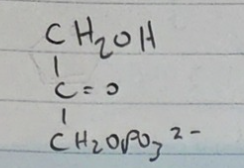 CH2OH
|
C=O
|
CH2OPO3 2-